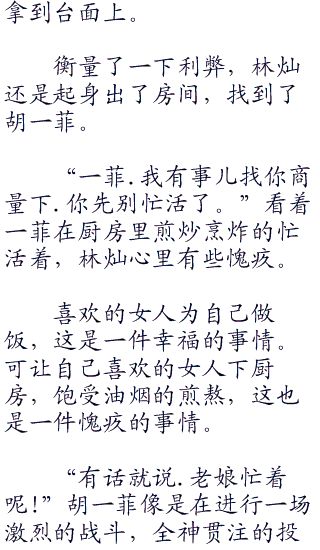 拿到台面上。
衡量了一下利弊，林灿
还是起身出了房间，找到了
胡一菲。
“一菲.我有事儿找你商
量下.你先别忙活了。”看着
一菲在厨房里煎炒烹炸的忙
活着，林灿心里有些愧疚。
喜欢的女人为自己做
饭，这是一件幸福的事情。
可让自己喜欢的女人下厨
房，饱受油烟的煎熬，这也
是一件愧疚的事情。
“有话就说.老娘忙着
呢!”胡一菲像是在进行一场
激烈的战斗，全神贯注的投